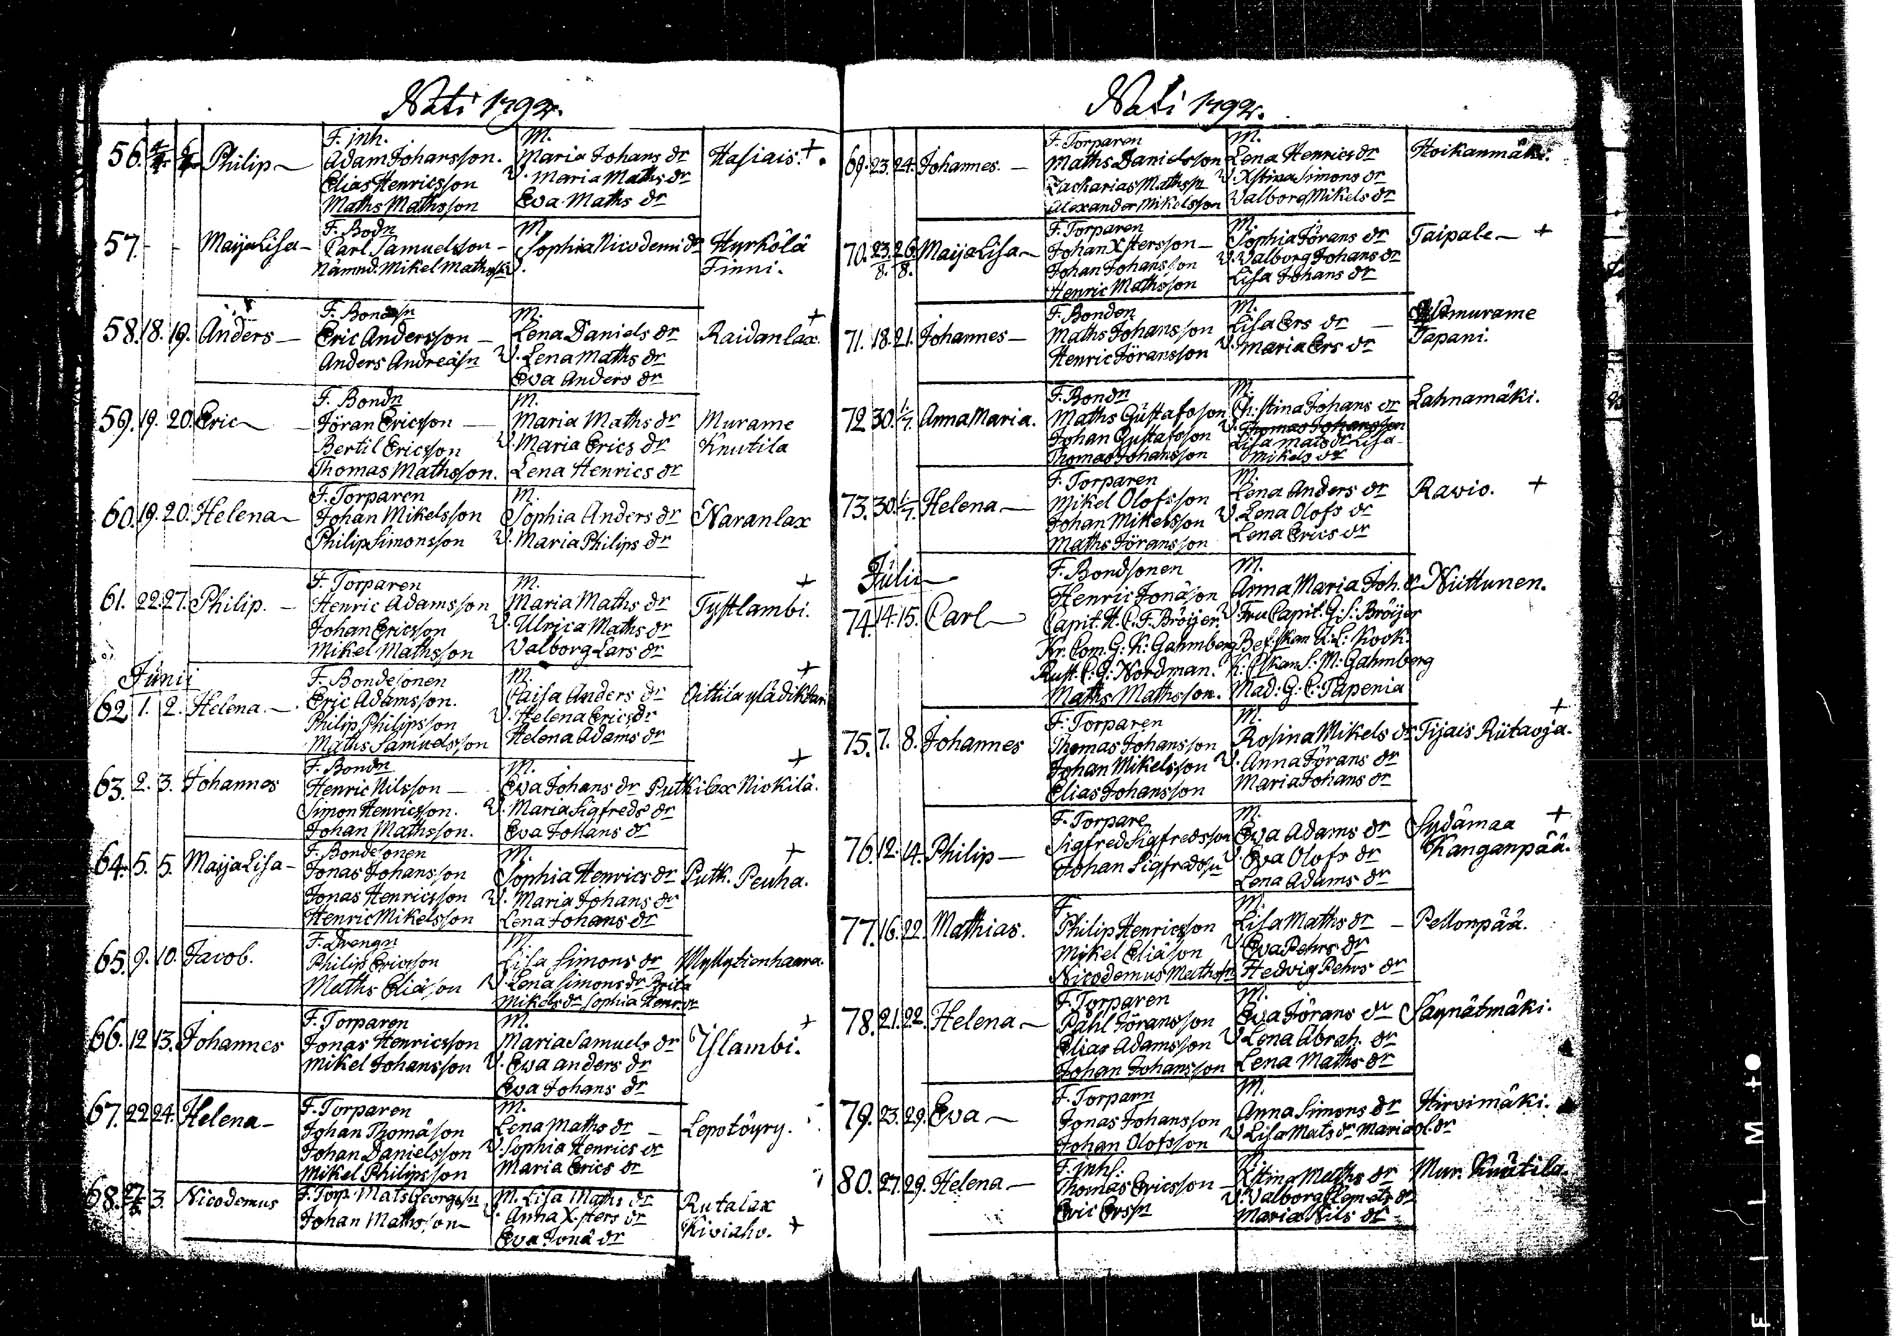 Nati 1792.
56. Philip F. Inh. M.
Adam Johansson. Maria Johans dr Hasiais. +.
Elias Henricsson V. Maria Maths dr
Maths Mathsson Eva Maths dr
57 - - Maija Lisa - F. Bodn M.
Carl Samuelsson - Sophia Nicodemi dr Hyrkölä
Nämnd. Mikel Mathss V. Finni.
58. 18. 19. Anders - F. Bonden M. +
Eric Andersson - Lena Daniels dr Raidanlax.
Anders Andreasn V. Lena Maths dr
Eva Anders dr
59. 19. 20. Eric - F. Bondn M.
Jöran Ericsson - Maria Maths dr Murame
Bertil Ericsson V. Maria Erics dr Knutila
Thomas Mathsson. Lena Henrics dr
60. 19. 20. Helena - F. Torparen M.
Johan Mikelsson Sophia Anders dr Naranlax
Philip Simonsson V. Maria Philips dr
61. 22. 27. Philip. - F. Torparen M. +
Henric Adamsson Maria Maths dr Tystlambi.
Johan Ericsson V. Ulrica Maths dr
Mikel Mathsson Valborg Lars dr
Junii
62 1. 2. Helena. - F. Bondesonen M. +
Eric Adamsson. Caisa Anders dr Oittila
Philip Philipsson V. Helena Erics dr
Maths Samuelsson Helena Adams dr
63. 2. 3. Johannes F. Bondn M. +
Henric Nilsson - Eva Johans dr Putkilax Niskilä.
Simon Henricsson. V. Maria Sigfreds dr
Johan Mathsson. Eva Johans dr
64. 5. 5. Maija Lisa - F. Bondesonen M. +
Jonas Johansson Sophia Henrics dr Putk. Peuha.
Jonas Henricsson V. Maria Johans dr
Henric Mikelsson Lena Johans dr
65. 9. 10. Jacob. F. Drengn M.
Philip Ericsson Lisa Simons dr Myllytienhaara
Maths Eliäson V. Lena Simons dr Brita
Mikels dr Sophia Henr. dr
66. 12 13. Johannes F. Torparen M. +
Jonas Henricsson Maria Samuels dr Yslambi.
Mikel Johansson V. Ewa Anders dr
Eva Johans dr
67. 22 24. Helena - F. Torparen M.
Johan Thomäson Lena Maths dr - Lepotöyry.
Johan Danielsson V. Sophia Henrics dr
Mikel Philipsson Maria Erics dr
68. 3. Nicodemus F. Torp. Mats Georgssn M. Lisa Maths dr Rutalax
Johan Mathsson - V. Anna X.sters dr Kiviaho. +
Eva Jonä dr
Nati 1792.
69. 23. 24. Johannes. - F. Torparen M.
Maths Danielsson Lena Henrics dr Hoikanmäki.
Zacharias Mathssn V. Xstina Simons dr
Alexander Mikelsson Valborg Mikels dr
70. 23/8. 26/8. Maija Lisa - F. Torparen M.
Johan Xstersson - Sophia Jörans dr Taipale - +
Johan Johansson V. Valborg Johans dr
Henric Mathsson Lisa Johans dr
71. 18. 21. Johannes - F. Bonden M.
Maths Johansson Lisa Ers dr - murame
Henric Jöransson V. Maria Ers dr Tapani.
72 30. 1/7. Anna Maria. F. Bondn M.
Maths Gustafsson Christina Johans dr Lahnamäki.
Johan Gustafsson V. Thomas Johansson
Thomas Johansson Lisa Mats dr Lisa
Mikels dr
73. 30. 1/7. Helena - F. Torparen M.
Mikel Olofsson Lena Anders dr Ravio. +
Johan Mikelsson V. Lena Olofs dr
Maths Jöransson Lena Erics dr
Julii
74. 14. 15. Carl - F. Bondsonen M.
Henric Jonäson Anna Maria Joh. dr Niittunen.
Capit. H. C. F. Bröijer. V. Fru Capit. G: S: Bröijer
Kr. Com. G. K. Gahmberg Bef.skan K: L: Kook.
Rust. C. G: Nordman. K: C.skan S: M: Gahmberg
Maths Mathsson. Mad: G: C: Tapenia
75. 7. 8. Johannes F. Torparen M. +
Thomas Johansson Rosina Mikels dr Tijais Riitaoja.
Johan Mikelsson V. Anna Jörans dr
Elias Johansson Maria Johans dr
76. 12. 14. Philip - F. Torpare M.
Sigfred Sigfredsson Ewa Adams dr Sydämaa +
Johan Sigfredssn V. Eva Olofs dr Kanganpää.
Lena Adams dr
77. 16. 22. Mathias. F. M.
Philip Henricsson Lisa Maths dr - Pellonpää.
Mikel Eliäson V. Eva Pehrs dr
Nicodemus Mathssn Hedvig Pehrs dr
78. 21. 22. Helena - F. Torparen M.
Påhl Jöransson Eva Jörans dr Säynätmäki.
Elias Adamsson V. Lena Abrah. dr
Johan Johansson Lena Maths dr
79. 23. 29. Eva - F. Torparn M.
Jonas Johansson Anna Simons dr Hirvimäki.
Johan Olofsson V. Lisa Mats dr Maria ol. dr
80. 27. 29. Helena - F. Inhs. M.
Thomas Ericsson - Xstina Maths dr Mur. Knutila.
Eric Erssn V. Valborg Clemets dr
Maria Nils dr
F I L M